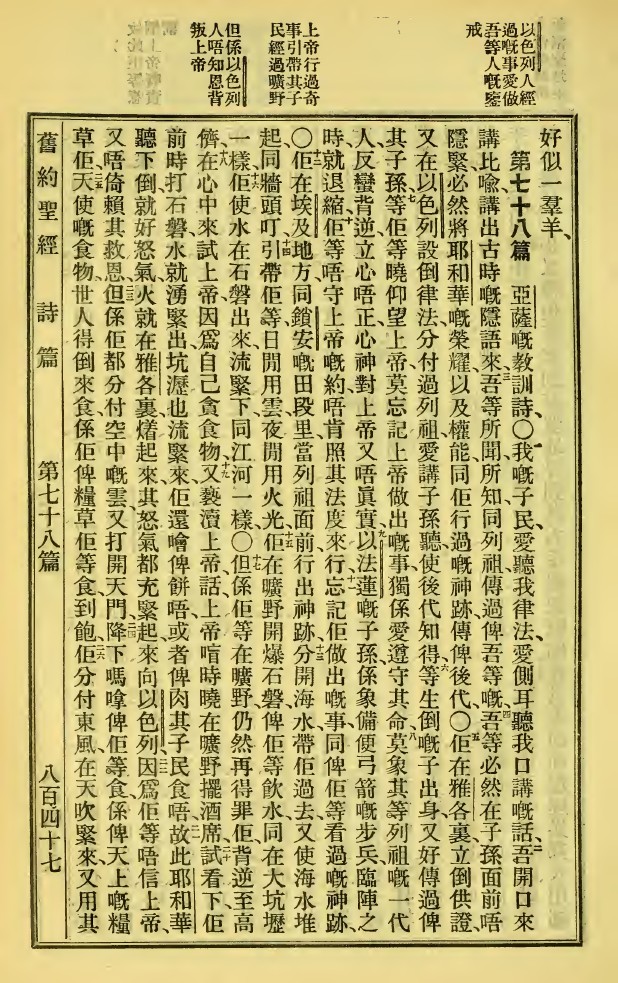 以色列人經
過嘅事愛做
吾等人嘅鑒
戒
上帝行過奇
事引帶其子
民經過曠野
但係以色列
人唔知恩背
叛上帝
好似一羣羊、
第七十八篇　亞薩嘅教訓詩、〇一我嘅子民、愛聽我律法、愛側耳聽我口講嘅話、二吾開口來
講比喩、講出古時嘅隱語來、三吾等所聞所知、同列祖傳過俾吾等嘅、四吾等必然在子孫面前唔
隱緊、必然將耶和華嘅榮耀、以及權能、同佢行過嘅神跡、傳俾後代、〇五佢在雅各裏立倒供證、
又在以色列設倒律法、分付過列祖、愛講子孫聽、六使後代知得、等生倒嘅子出身、又好傳過俾
其子孫、七等佢等曉仰望上帝、莫忘記上帝做出嘅事、獨係愛遵守其命、八莫象其等列祖嘅一代
人、反蠻背逆、立心唔正、心神對上帝又唔眞實、九以法蓮嘅子孫、係象備便弓箭嘅步兵、臨陣之
時、就退縮、十佢等唔守上帝嘅約、唔肯照其法度來行、十一忘記佢做出嘅事、同俾佢等看過嘅神跡、
〇十二佢在埃及地方、同鎖安嘅田段裏、當列祖面前行出神跡、十三分開海水帶佢過去、又使海水堆
起同牆頭叮、十四引帶佢等、日閒用雲、夜閒用火光、十五佢在曠野開爆石磐、俾佢等飲水、同在大坑壢
一樣、十六佢使水在石磐出來、流緊下同江河一樣、〇十七但係佢等在曠野仍然再得罪佢、背逆至高
儕、十八在心中來試上帝、因爲自己貪食物、十九又褻瀆上帝話、上帝啱時曉在曠野擺酒席、二十試看下佢
前時打石磐、水就湧緊出、坑瀝也流緊來、佢還噲俾餅唔、或者俾肉其子民食唔、二一故此耶和華
聽下倒就好怒氣、火就在雅各裏𤏸起來、其怒氣都充緊起來向以色列、二二因爲佢等唔信上帝、
又唔倚賴其救恩、二三但係佢都分付空中嘅雲、又打開天門、二四降下嗎嗱俾佢等食、係俾天上嘅糧
草佢、二五天使嘅食物、世人得倒來食、係佢俾糧草佢等食到飽、二六佢分付東風、在天吹緊來、又用其
舊約聖經　詩篇　第七十八篇　八百四十七